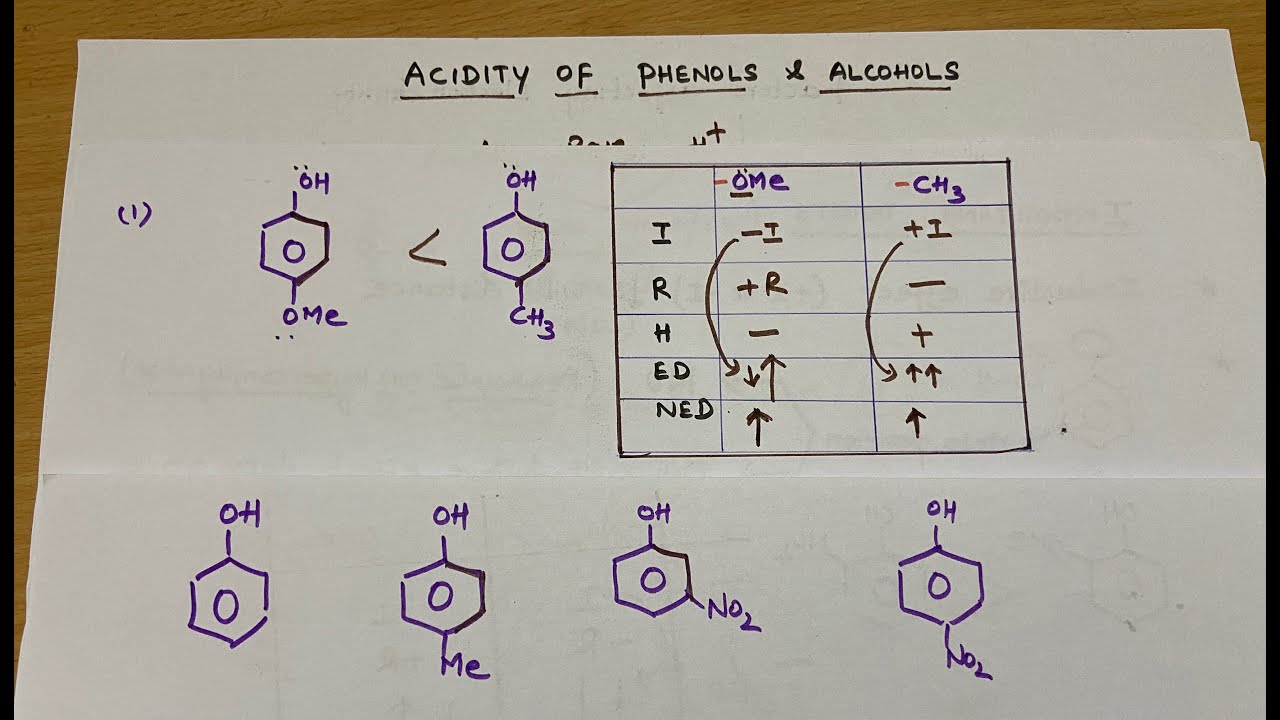 ACIDITY OF PHENOLS & ALCOHOLS
H+
(1)
ÖH
OMe
<
ÖH
CH3
-ÖMe -CH3
I -I +I
R +R —
H — +
ED ↓↑ ↑↑
NED ↑ ↑
OH
OH
Me
OH
NO2
OH
NO2